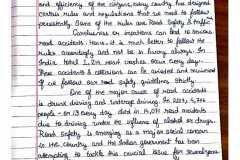 and efficiency of the citizens, every country has designed
certain rules and regulations that we need to follow
persistently. Some of the rules are Road Safety & traffic
Carelessness or impatience can lead to serious
road accidents. Hence, it is much better to follow the
rules accordingly and not be in hurry always. In
India, total road crashes occur every day.
These accidents & collisions can be avoided and minimised
if we follow our road safety guidelines strictly.
One of the major cause of road accidents
is drunk driving and underage driving. In
people - or 13 every day died in road accidents
due to driving under the influence of alcohol or drugs.
Road Safety is emerging as a major social concern
in the country and the Indian government has been
attempting to tackle this crucial issue for several years